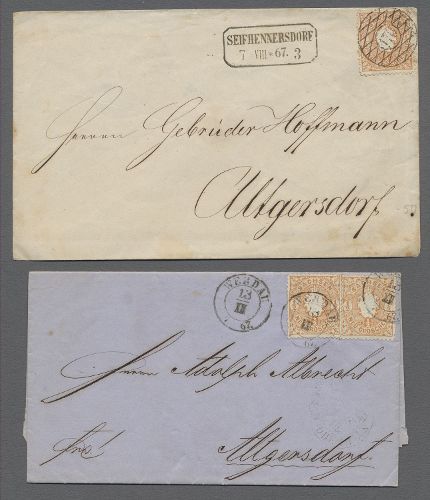 SEIFHENNERSDORF
7 VIII * 67. 3
Herrn Gebrüder Hoffmann
Altgersdorf.
WERDAU
13
III
67
Herrn Adolph Albrecht
frco!
Altgersdorf